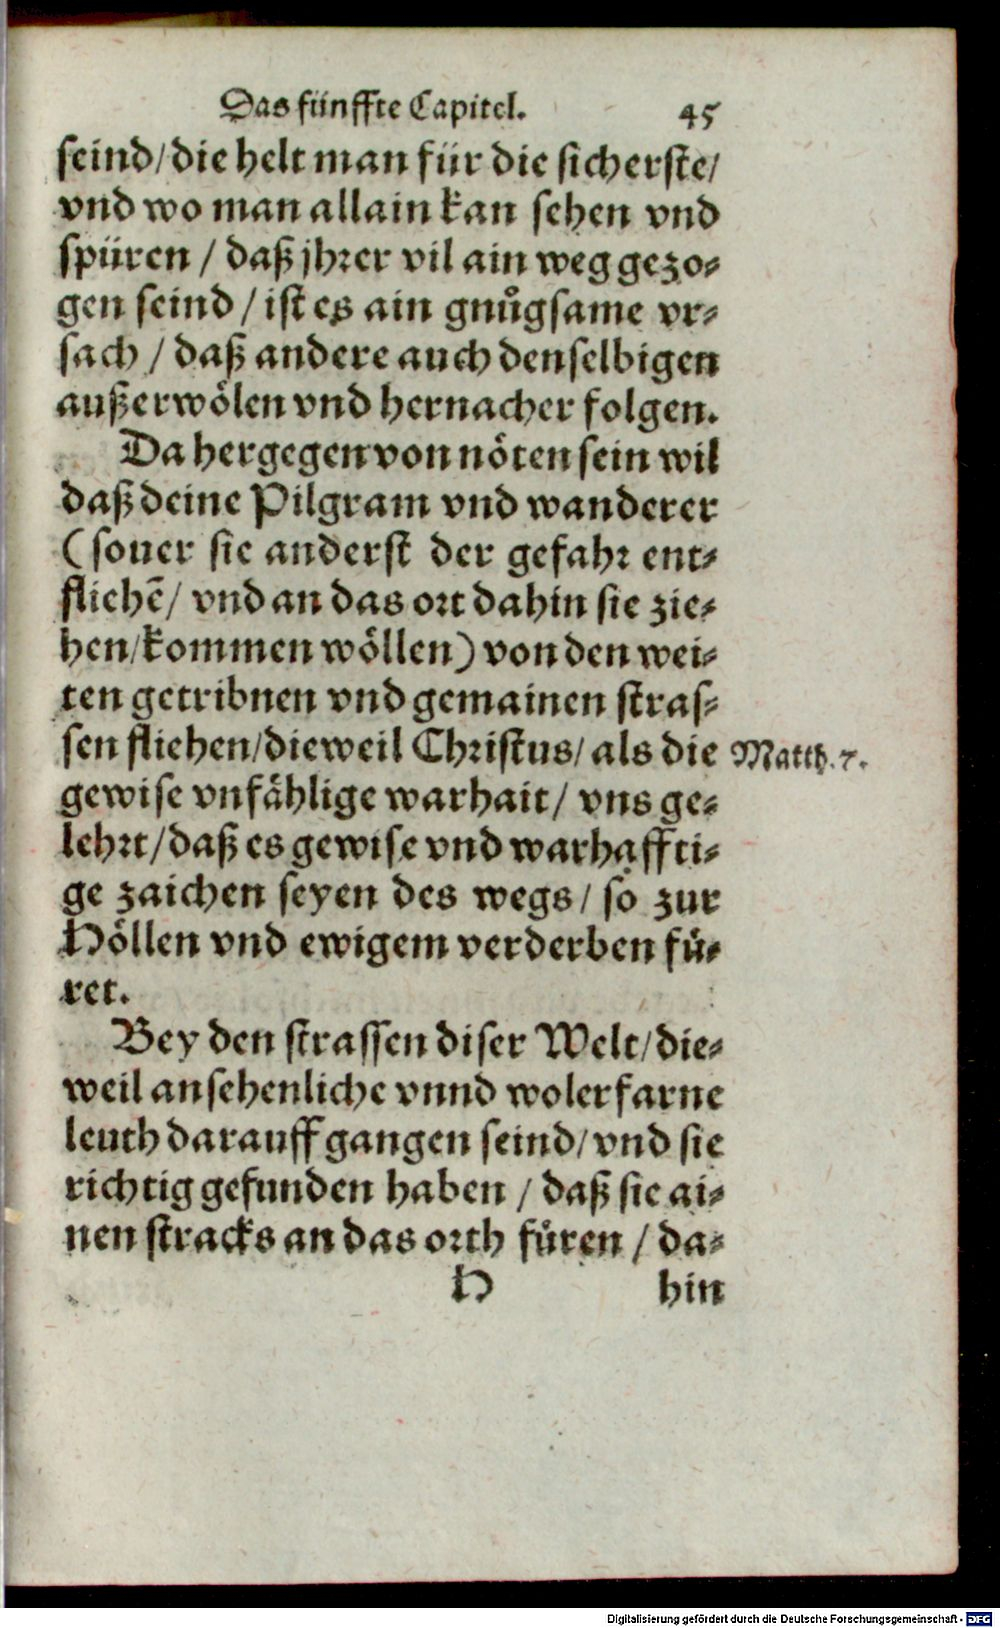 Das fünffte Capitel. 45
seind/die helt man für die sicherste/
vnd wo man allain kan sehen vnd
spüren / daß jhrer vil ain weg gezo-
gen seind / ist es ain gnůgsame vr-
sach / daß andere auch denselbigen
außerwölen vnd hernacher folgen.
Da hergegen von nöten sein wil
daß deine Pilgram vnd wanderer
(souer sie anderst der gefahr ent-
fliehē/ vnd an das ort dahin sie zie-
hen/kommen wöllen) von den wei-
ten getribnen vnd gemainen stras-
sen fliehen/dieweil Christus/ als die
Matth. 7.
gewise vnfählige warhait/ vns ge-
lehrt/daß es gewise vnd warhaffti-
ge zaichen seyen des wegs/ so zur
Höllen vnd ewigem verderben fü-
ret.
Bey den strassen diser Welt/die-
weil ansehenliche vnnd wolerfarne
leuth darauff gangen seind/vnd sie
richtig gefunden haben / daß sie ai-
nen stracks an das orth füren / da-
H hin
Digitalisierung gefördert durch die Deutsche Forschungsgemeinschaft - DFG